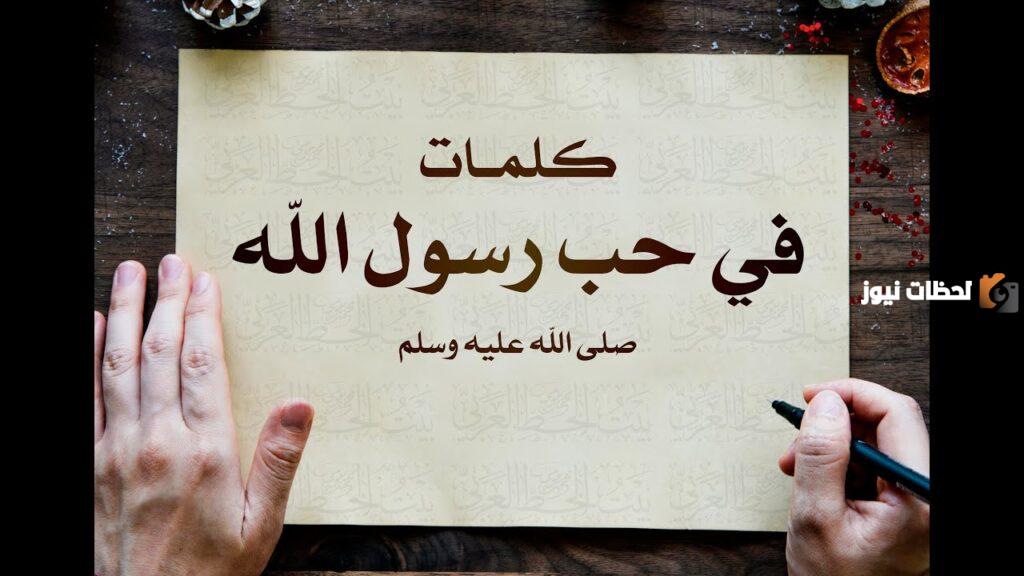 كلمات
في حب رسول الله
صلى الله عليه وسلم
لحظات نيوز